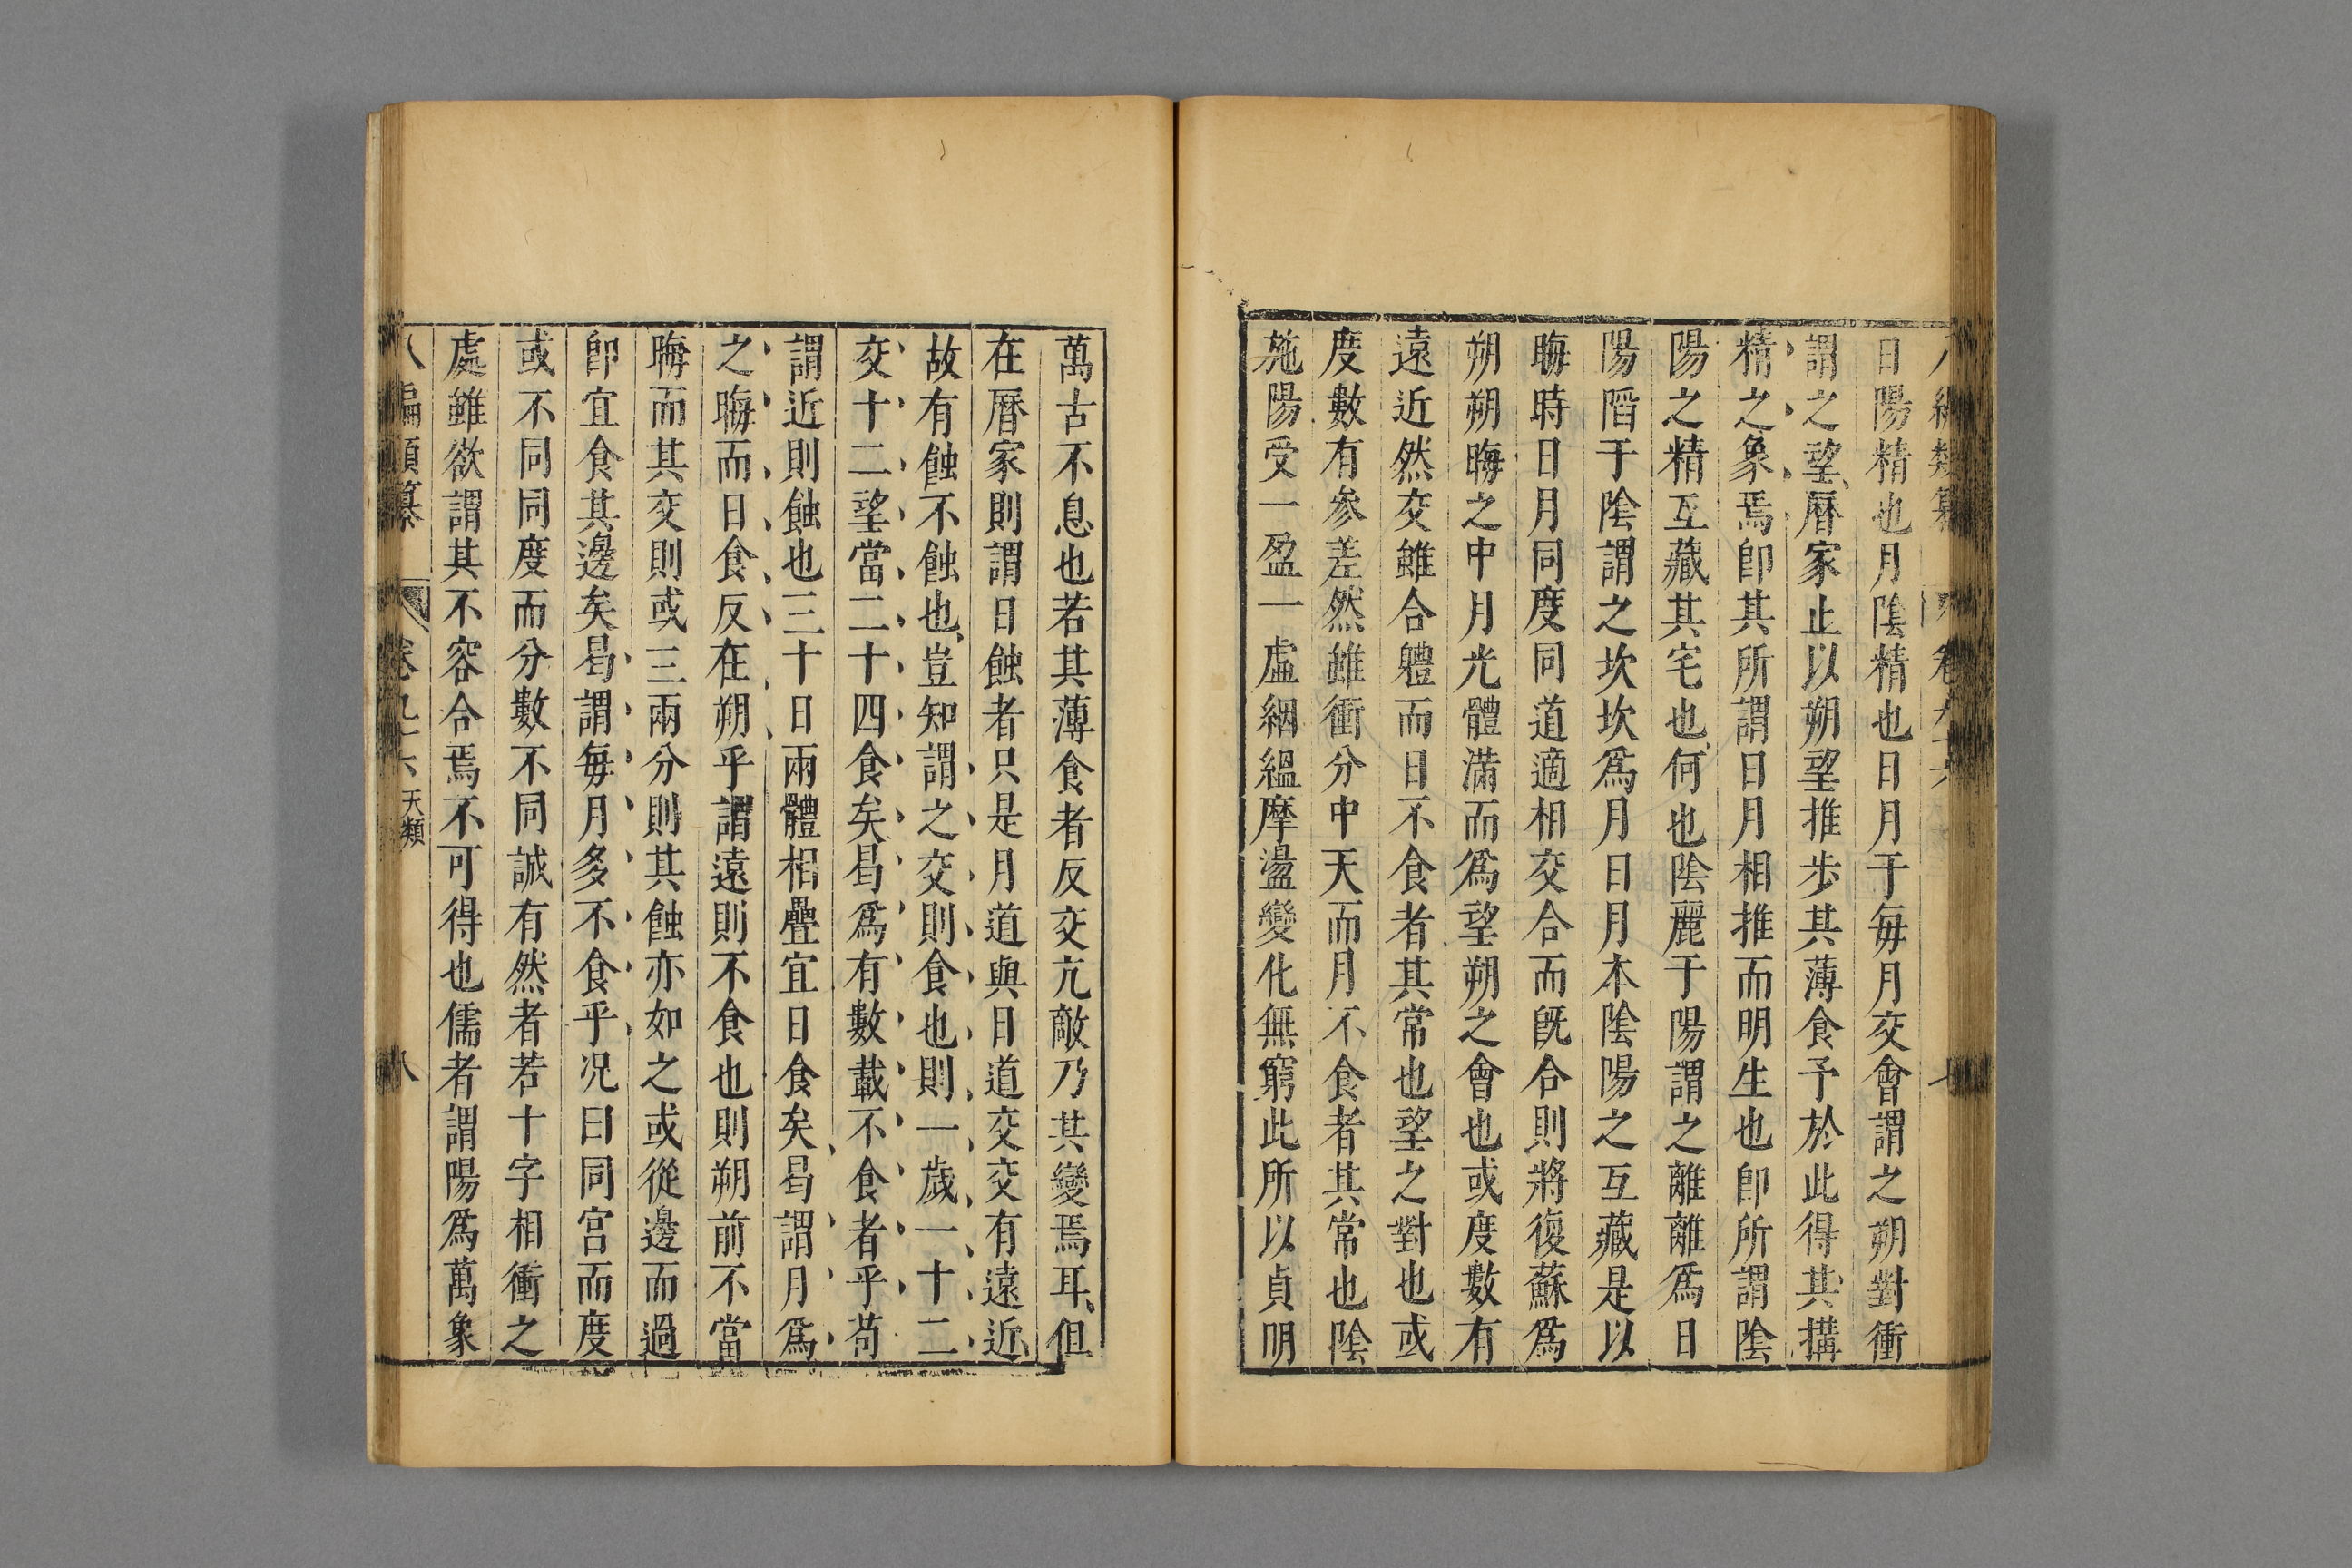 日陽精也月陰精也日月于每月交會謂之朔對衝
謂之望曆家止以朔望推步其薄食予於此得其搆
精之象焉卽其所謂日月相推而明生也卽所謂陰
陽之精互藏其宅也何也陰麗于陽謂之離離爲日
陽陷于陰謂之坎坎爲月日月本陰陽之互藏是以
晦時日月同度同道適相交合而旣合則將復蘇爲
朔朔晦之中月光體滿而爲望朔之會也或度數有
遠近然交雖合體而日不食者其常也望之對也或
度數有參差然雖衝分中天而月不食者其常也陰
施陽受一盈一虛絪縕摩盪變化無窮此所以貞明
萬古不息也若其薄食者反交亢敵乃其變焉耳但
在曆家則謂日蝕者只是月道與日道交交有遠近
故有蝕不蝕也豈知謂之交則食也則一歲一十二
交十二望當二十四食矣曷爲有數載不食者乎苟
謂近則蝕也三十日兩體相疊宜日食矣曷謂月爲
之晦而日食反在朔乎謂遠則不食也則朔前不當
晦而其交則或三兩分則其蝕亦如之或從邊而過
卽宜食其邊矣曷謂每月多不食乎况曰同宫而度
或不同同度而分數不同誠有然者若十字相衝之
處雖欲謂其不容合焉不可得也儒者謂陽爲萬象
八編類纂 卷九十六 天類 八